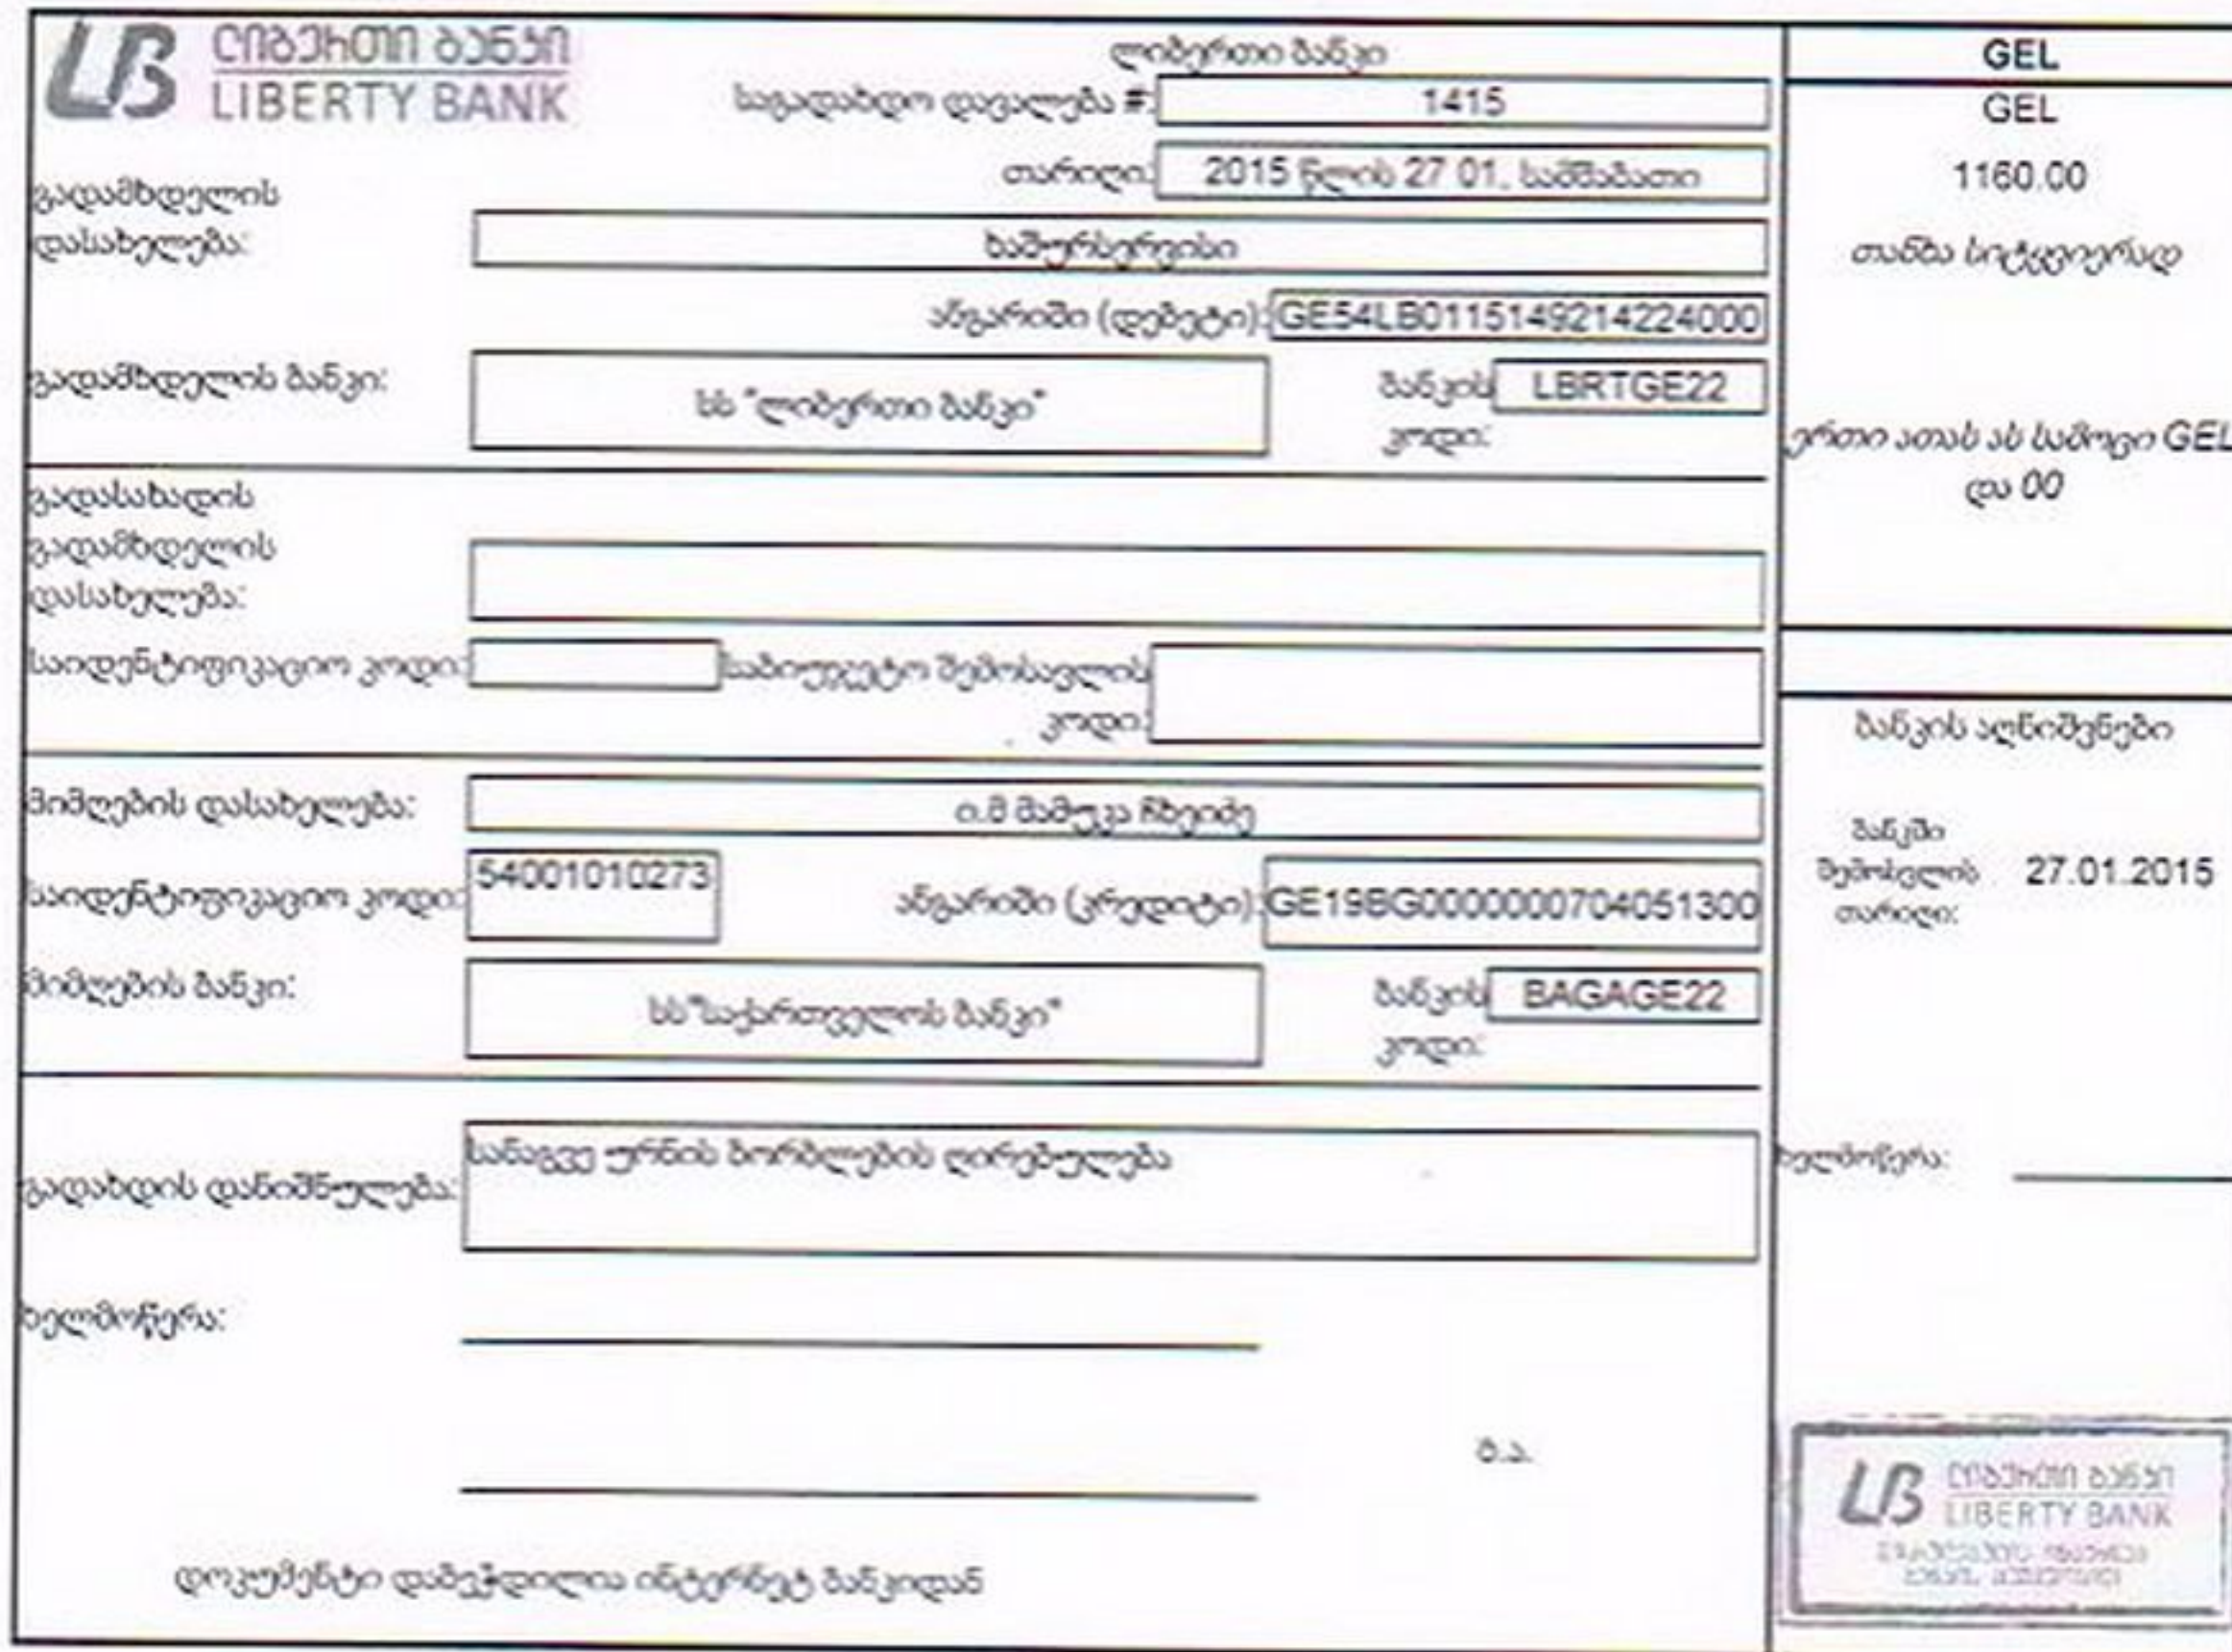 ლიბერთი ბანკი
LIBERTY BANK
ლიბერთი ბანკი
საგადახდო დავალება #: 1415
თარიღი: 2015 წლის 27 01, სამშაბათი
გადამხდელის
დასახელება: ხაშურსერვისი
ანგარიში (დებეტი): GE54LB0115149214224000
გადამხდელის ბანკი: სს "ლიბერთი ბანკი" ბანკის LBRTGE22
კოდი:
გადასახადის
გადამხდელის
დასახელება:
საიდენტიფიკაციო კოდი: საბიუჯეტო შემოსავლის
კოდი:
მიმღების დასახელება: ი.მ მამუკა ჩხეიძე
საიდენტიფიკაციო კოდი: 54001010273 ანგარიში (კრედიტი): GE19BG0000000704051300
მიმღების ბანკი: სს"საქართველოს ბანკი" ბანკის BAGAGE22
კოდი:
გადახდის დანიშნულება: სანაგვე ურნის ბორბლების ღირებულება
ხელმოწერა:
ბ.ა.
დოკუმენტი დაბეჭდილია ინტერნეტ ბანკიდან
GEL
GEL
1160.00
თანხა სიტყვიერად
ერთი ათას ას სამოცი GEL
და 00
ბანკის აღნიშვნები
ბანკში
შემოსვლის 27.01.2015
თარიღი:
ხელმოწერა:
ლიბერთი ბანკი
LIBERTY BANK